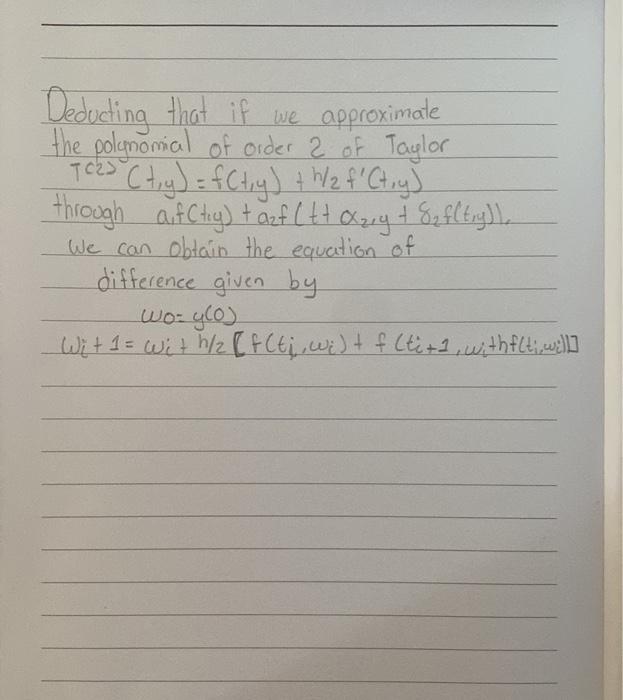 Deducting that if we approximate
the polynomial of order 2 of Taylor
T<2> (t,y) = f(t,y) + h/2 f'(t,y)
through a₁f(t,y) + a₂f(t+α₂,y + δ₂f(t,y)),
We can obtain the equation of
difference given by
w0 = y(0)
Wi+1 = wi + h/2 [f(ti,wi) + f(ti+1,wi+hf(ti,wi))]